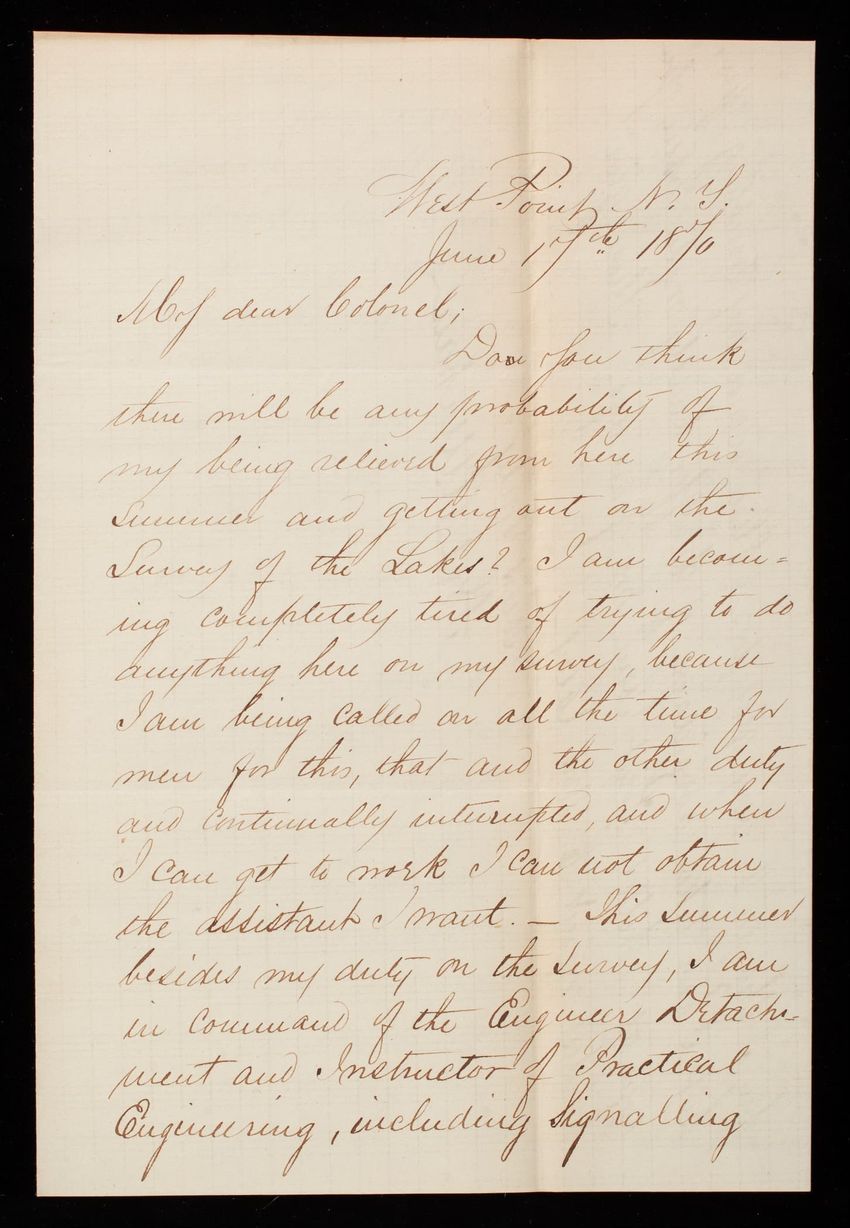 West Point, N. Y.
June 17th 1870
My dear Colonel;
Do you think
there will be any probability of
my being relieved from here this
summer and getting out on the
Survey of the Lakes? I am becom=
ing completely tired of trying to do
anything here on my survey, because
I am being called on all the time for
men for this, that and the other duty
and continually interrupted, and when
I can get to work I can not obtain
the assistants I want. — This summer
besides my duty on the survey, I am
in command of the Engineer Detach-
ment and Instructor of Practical
Engineering, including Signalling